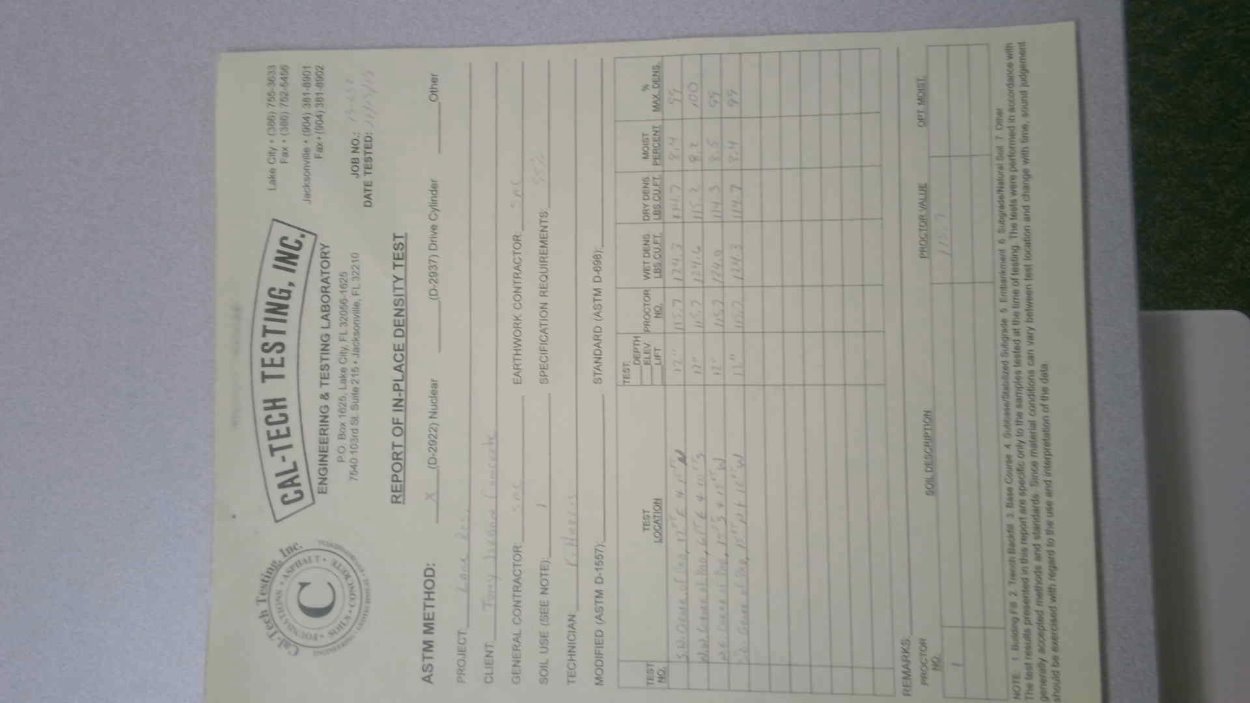 Cal-Tech Testing, Inc.
FOUNDATIONS • ASPHALT
SOILS • CONCRETE
C
CAL-TECH TESTING, INC.
ENGINEERING & TESTING LABORATORY
P.O. Box 1625, Lake City, FL 32056-1625
7540 103rd St. Suite 215 • Jacksonville, FL 32210
Lake City • (386) 755-3633
Fax • (386) 752-5456
Jacksonville • (904) 381-8901
Fax • (904) 381-8902
JOB NO.:
DATE TESTED:
REPORT OF IN-PLACE DENSITY TEST
ASTM METHOD: X (D-2922) Nuclear (D-2937) Drive Cylinder Other
PROJECT: Lane Res.
CLIENT: Tony Concrete
GENERAL CONTRACTOR: EARTHWORK CONTRACTOR:
SOIL USE (SEE NOTE): 1 SPECIFICATION REQUIREMENTS:
TECHNICIAN
MODIFIED (ASTM D-1557): STANDARD (ASTM D-698):
TEST NO. TEST LOCATION TEST DEPTH ELEV LIFT PROCTOR NO. WET DENS. LBS.CU.FT. DRY DENS. LBS.CU.FT. MOIST PERCENT % MAX. DENS.
12" 115.7 124.3 114.7 8.4 99
12" 115.7 124.6 115.2 8.2 100
12" 115.7 124.0 114.3 8.5 99
12" 115.7 124.3 114.7 8.4 99
REMARKS:
PROCTOR NO. SOIL DESCRIPTION PROCTOR VALUE OPT. MOIST.
1 115.7
NOTE: 1. Building Fill 2. Trench Backfill 3. Base Course 4. Subbase/Stabilized Subgrade 5. Embankment 6. Subgrade/Natural Soil 7. Other
The test results presented in this report are specific only to the samples tested at the time of testing. The tests were performed in accordance with
generally accepted methods and standards. Since material conditions can vary between test location and change with time, sound judgement
should be exercised with regard to the use and interpretation of the data.